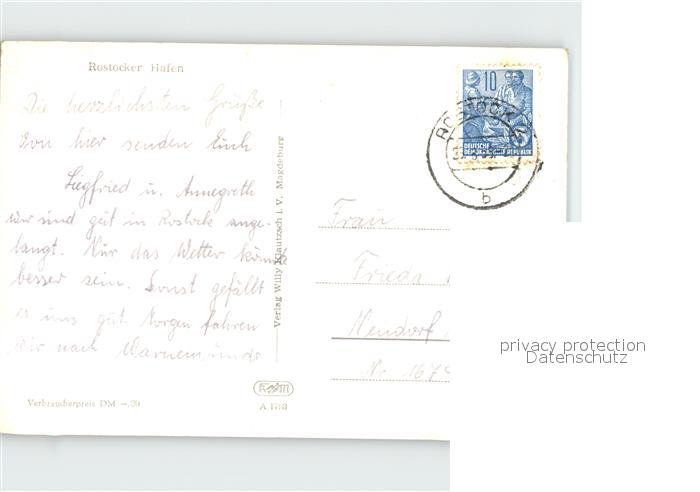 Rostocker Hafen
Die herzlichsten Grüße
von hier senden Euch
Siegfried u. Annegreth
wir sind gut in Rostock ange-
langt. Nur das Wetter könnte
besser sein. Sonst gefällt
es uns gut. Morgen fahren
wir nach Warnemünde
Verbraucherpreis DM –.20
Verlag Willy Klautzsch i. V. Magdeburg
A 1780
10
DEUTSCHE
DEMOKRATISCHE REPUBLIK
ROSTOCK 2
b
Frau
Frieda
Wendorf
Nr. 167
privacy protection
Datenschutz